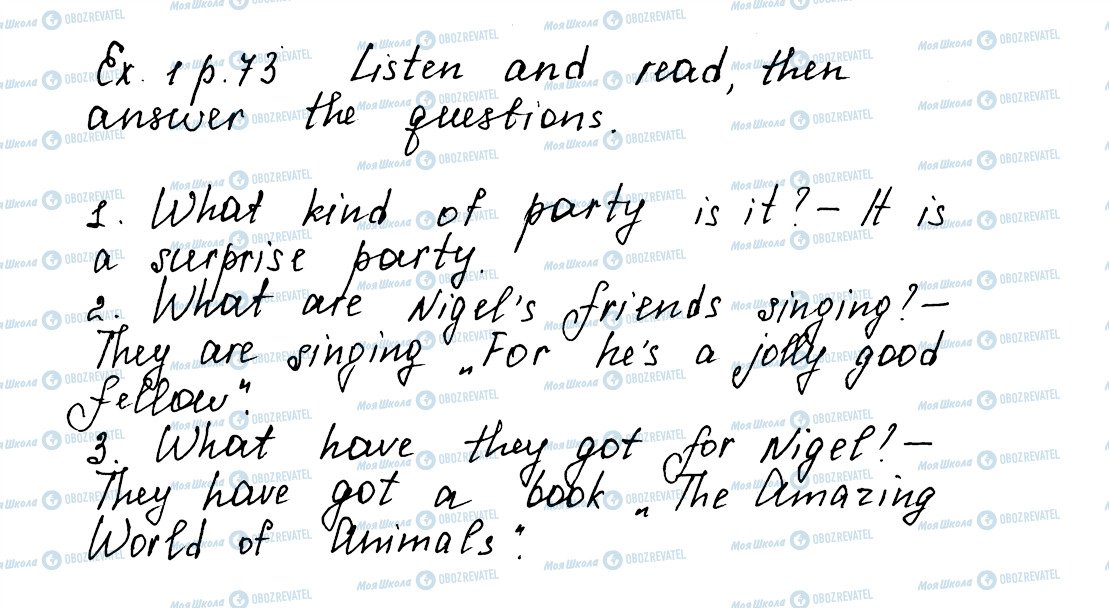 Ex. 1 p.73 Listen and read, then
answer the questions.
1. What kind of party is it? – It is
a surprise party.
2. What are Nigel's friends singing? –
They are singing „For he's a jolly good
fellow".
3. What have they got for Nigel? –
They have got a book „The Amazing
World of Animals".
Моя Школа OBOZREVATEL